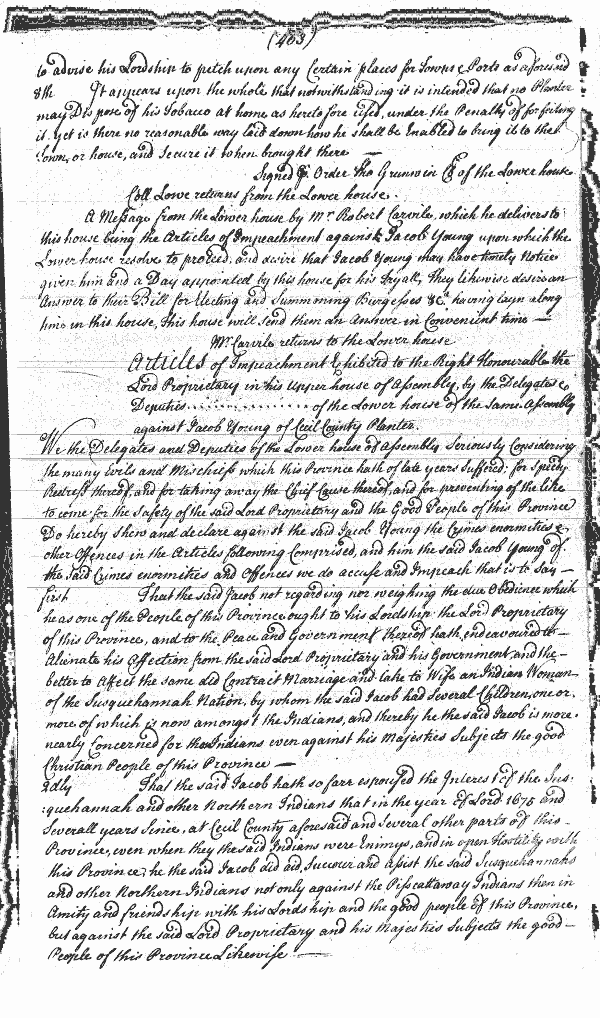 (403)
to advise his Lordship to petch upon any Certain places for Towns & Ports as aforesaid
8th It appears upon the whole that notwithstanding it is intended that no Planter
may Dispose of his Tobacco at home as heretofore used, under the Penalty of forfeiting
it. yet is there no reasonable way laid down how he shall be Enabled to bring it to the
Town, or house, and Secure it when brought there —
Signed p. Order Tho Grunwin Cl of the Lower house
Coll Lowe returns from the Lower house.
A Message from the Lower house by Mr Robert Carvile, which he delivers to
this house being the Articles of Impeachment against Jacob Young upon which the
Lower house resolve to proceed, and desire that Jacob Young may have timely Notice
given him and a Day appointed by this house for his Tryall, They likewise desire an
Answer to their Bill for Electing and Summoning Burgesses &ca having layn along
time in this house, This house will send them an Answer in Convenient time —
Mr Carvile returns to the Lower house
Articles of Impeachment Exhibited to the Right Honourable the
Lord Proprietary in his upper house of Assembly, by the Delegates &
Deputies . . . . . . . . . . . . of the Lower house of the Same Assembly
against Jacob Young of Cecil County Planter.
We the Delegates and Deputies of the Lower house of Assembly Seriously Considering
the many Evils and Mischiefs which this Province hath of late years Suffered; for Speedy
Redress thereof, and for taking away the Chief Cause thereof, and for preventing of the like
to come for the Safety of the said Lord Proprietary and the Good People of this Province
Do hereby Shew and declare against the said Jacob Young the Crymes enormities &
other Offences in the Articles following Comprised, and him the said Jacob Young of
the Said Crymes enormities and Offences we do accuse and Impeach that is to Say —
first That the said Jacob not regarding nor weighing the due Obedience which
he as one of the People of this Province ought to his Lordship the Lord Proprietary
of this Province, and to the Peace and Government thereof hath endeavoured to —
Alienate his Affection from the said Lord Proprietary and his Government and the —
better to Affect the same did Contract Marriage and take to Wife an Indian Woman
of the Susquehannah Nation, by whom the said Jacob had Several Children, one or
more of which is now amongst the Indians, and thereby he the said Jacob is more
nearly Concerned for the Indians even against his Majesties Subjects the good
Christian People of this Province —
2dly That the said Jacob hath so farr espoused the Interest of the Sus:
:quehannah and other Northern Indians that in the year of Lord 1675 and
Severall years Since, at Cecil County aforesaid and Several other parts of this —
Province, even when they the said Indians were Enimys, and in open Hostility with
this Province; he the said Jacob did aid, Succour and assist the said Susquehannahs
and other Northern Indians not only against the Piscattaway Indians then in
Amity and friendship with his Lordship and the good people of this Province,
but against the said Lord Proprietary and his Majesties Subjects the good —
People of this Province Likewise —